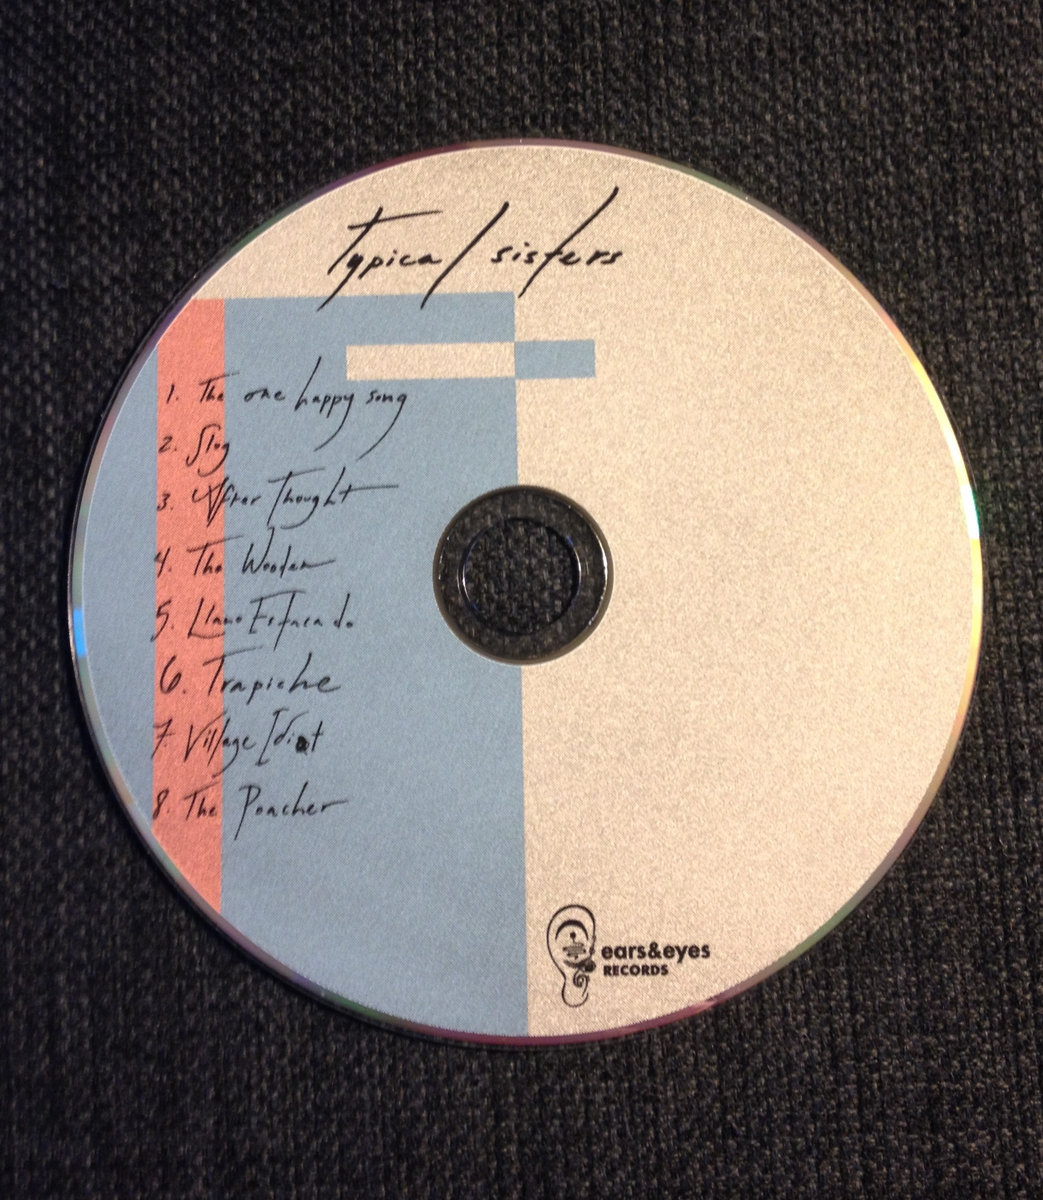 Typical sisters
1. The one happy song
2. Slog
3. After Thought
4. The Wooden
5. Llano Estacado
6. Trapiche
7. Village Idiot
8. The Poacher
ears&eyes
RECORDS